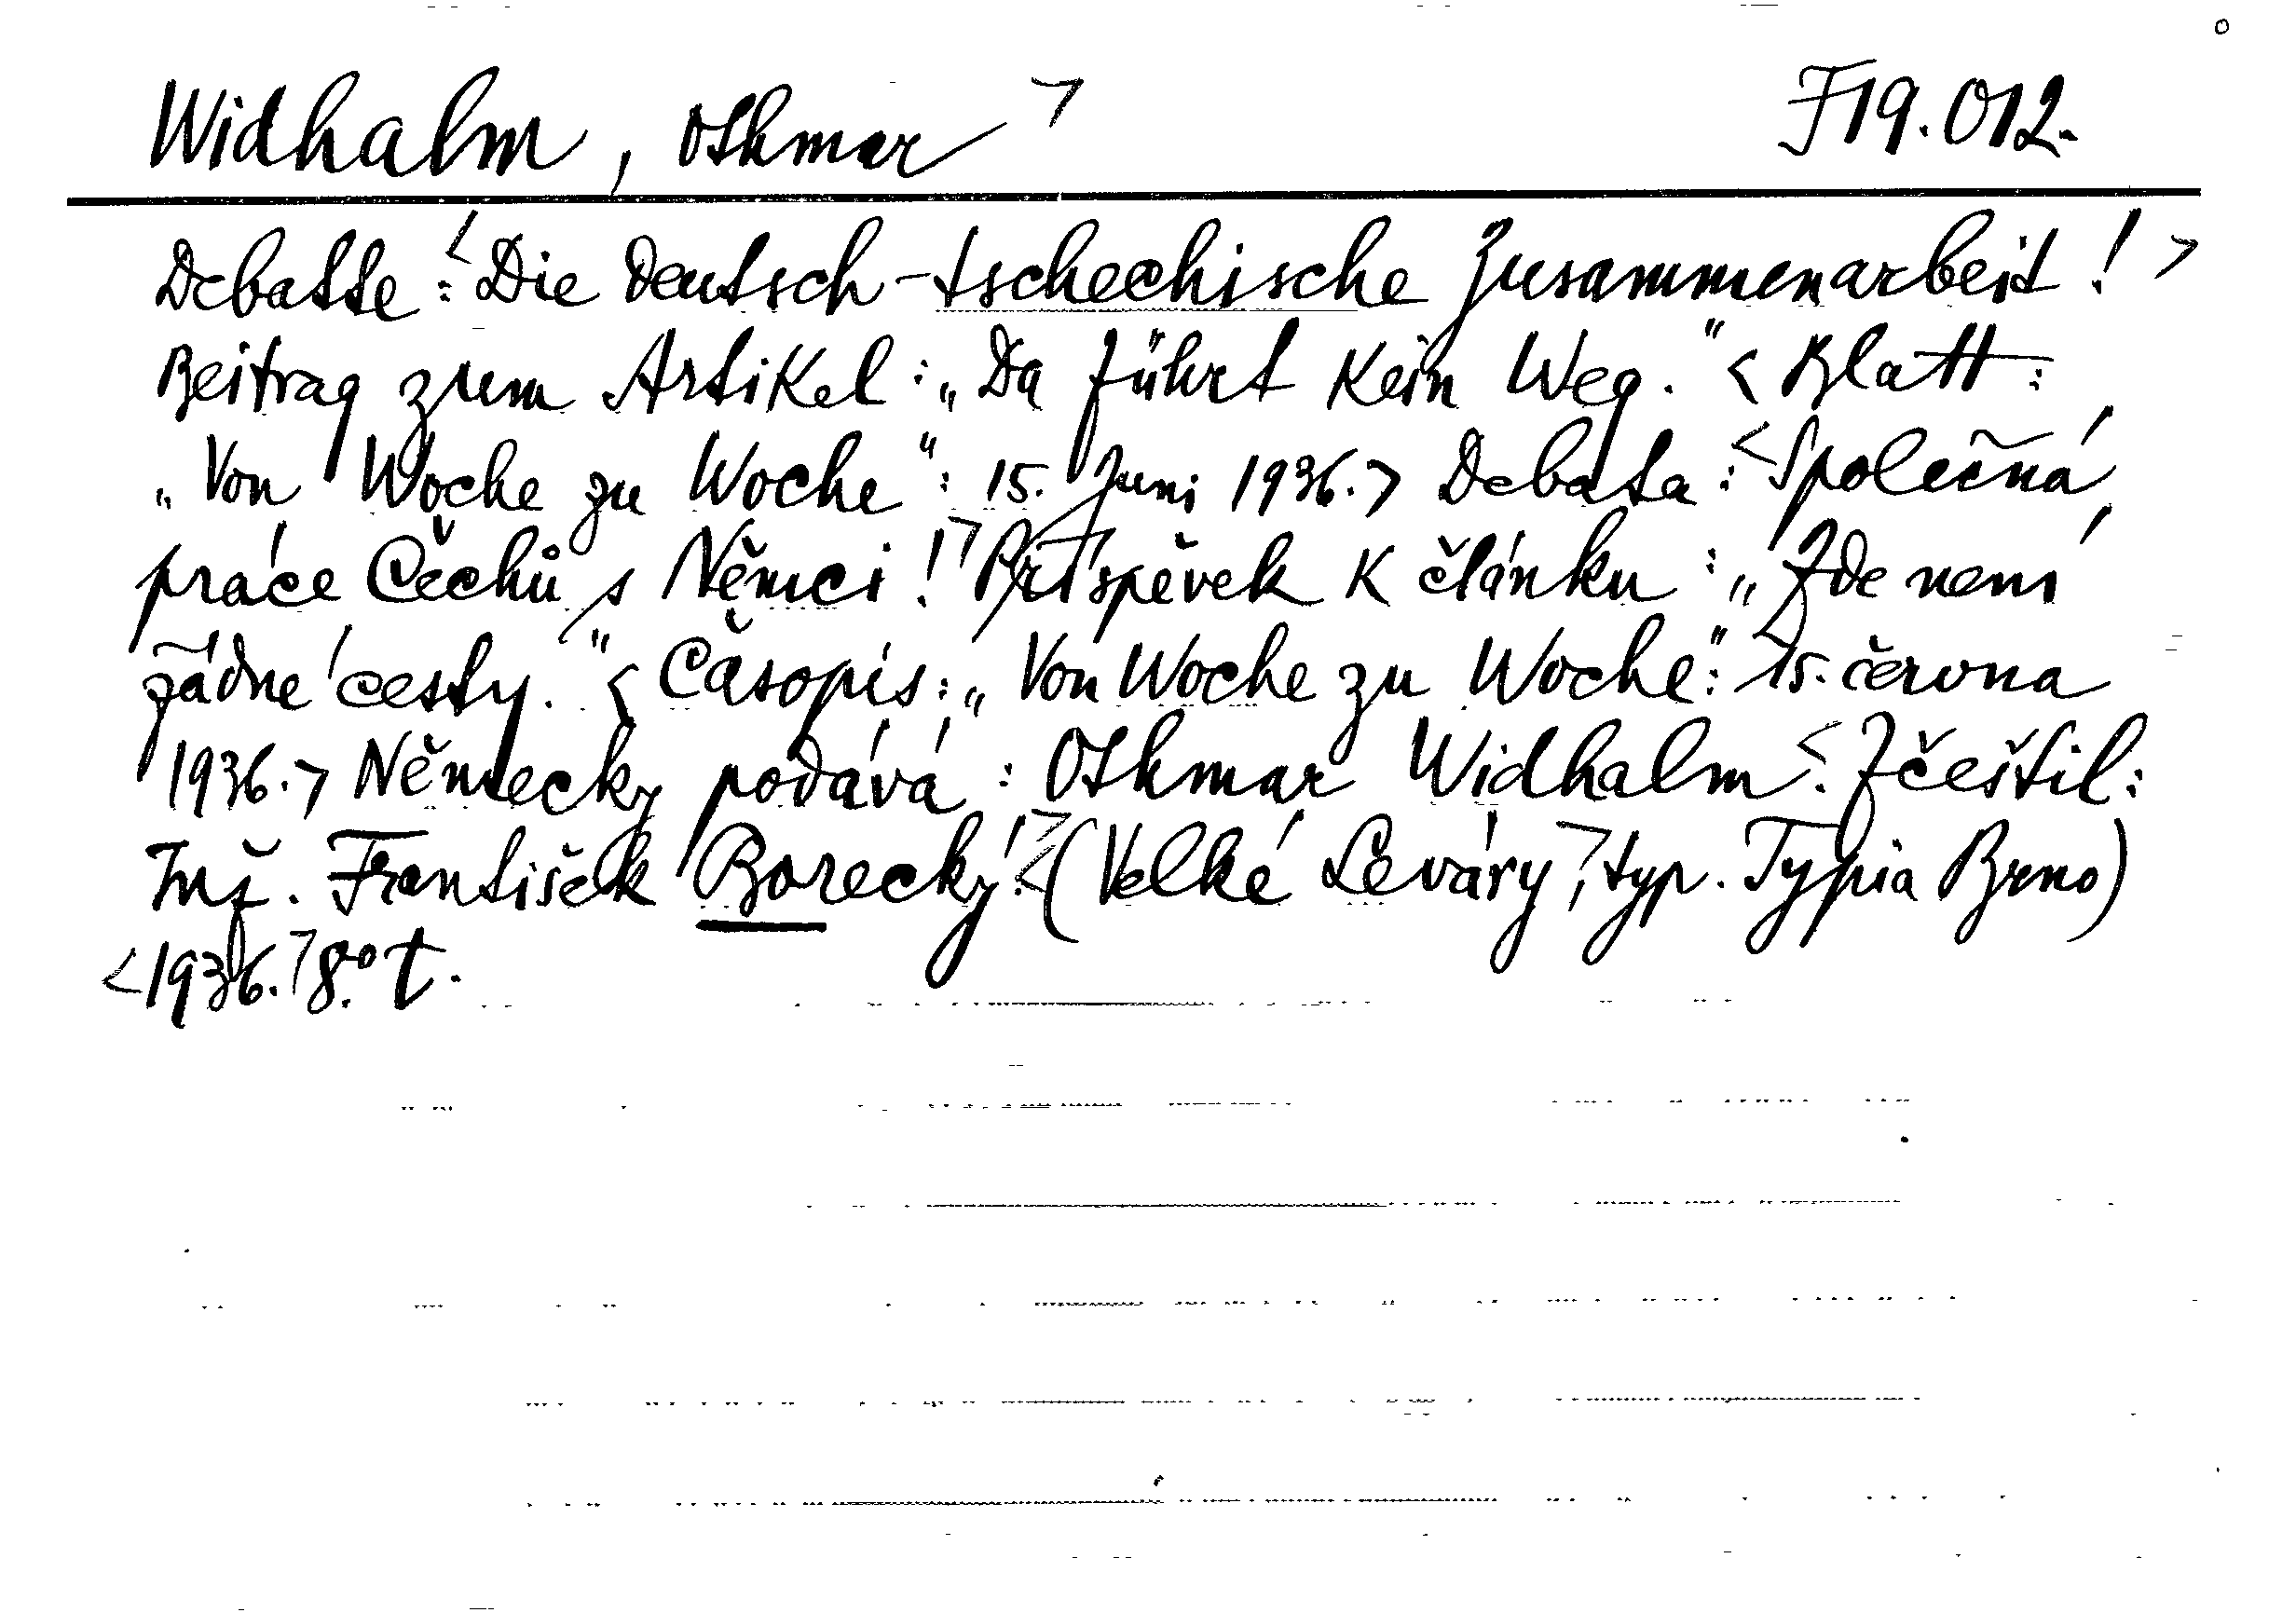 Widhalm, Othmar > F19.012.
Debatte: <Die deutsch-tschechische Zusammenarbeit!>
Beitrag zum Artikel: „Da führt kein Weg.“ < Blatt:
„Von Woche zu Woche“: 15. Juni 1936.> Debata: <Společná
práce Čechů s Němci!> Příspěvek k článku: „Zde není
žádné cesty.“ < Časopis: „Von Woche zu Woche“: 15. června
1936.> Německy podává: Othmar Widhalm <. Zčeštil:
Inž. František Borecký.> <(Velké Leváry>, typ. Typia Brno)
<1936.> 8.° t.